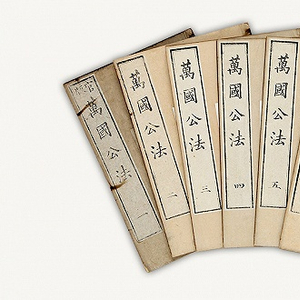 萬國公法 一
萬國公法 二
萬國公法 三
萬國公法 四
萬國公法 五